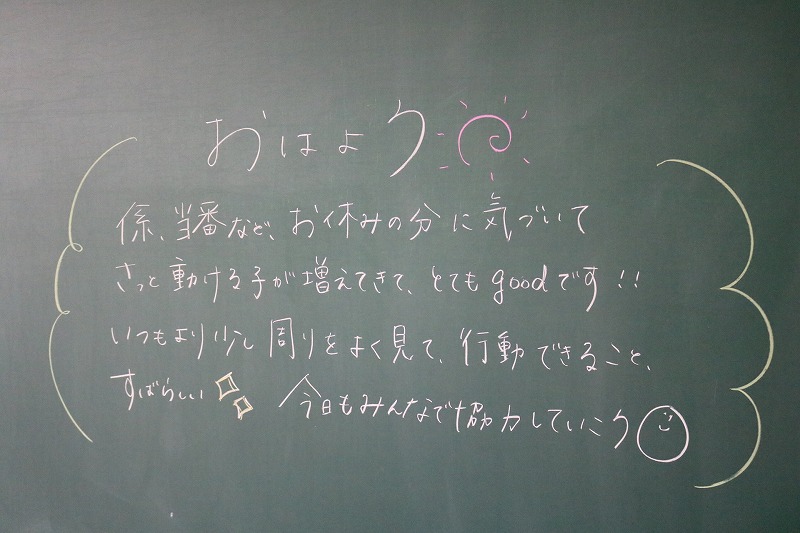 おはよう
係、当番など、お休みの分に気づいて
さっと動ける子が増えてきて、とてもgoodです!!
いつもより少し周りをよく見て、行動できること、
すばらしい 今日もみんなで協力していこう